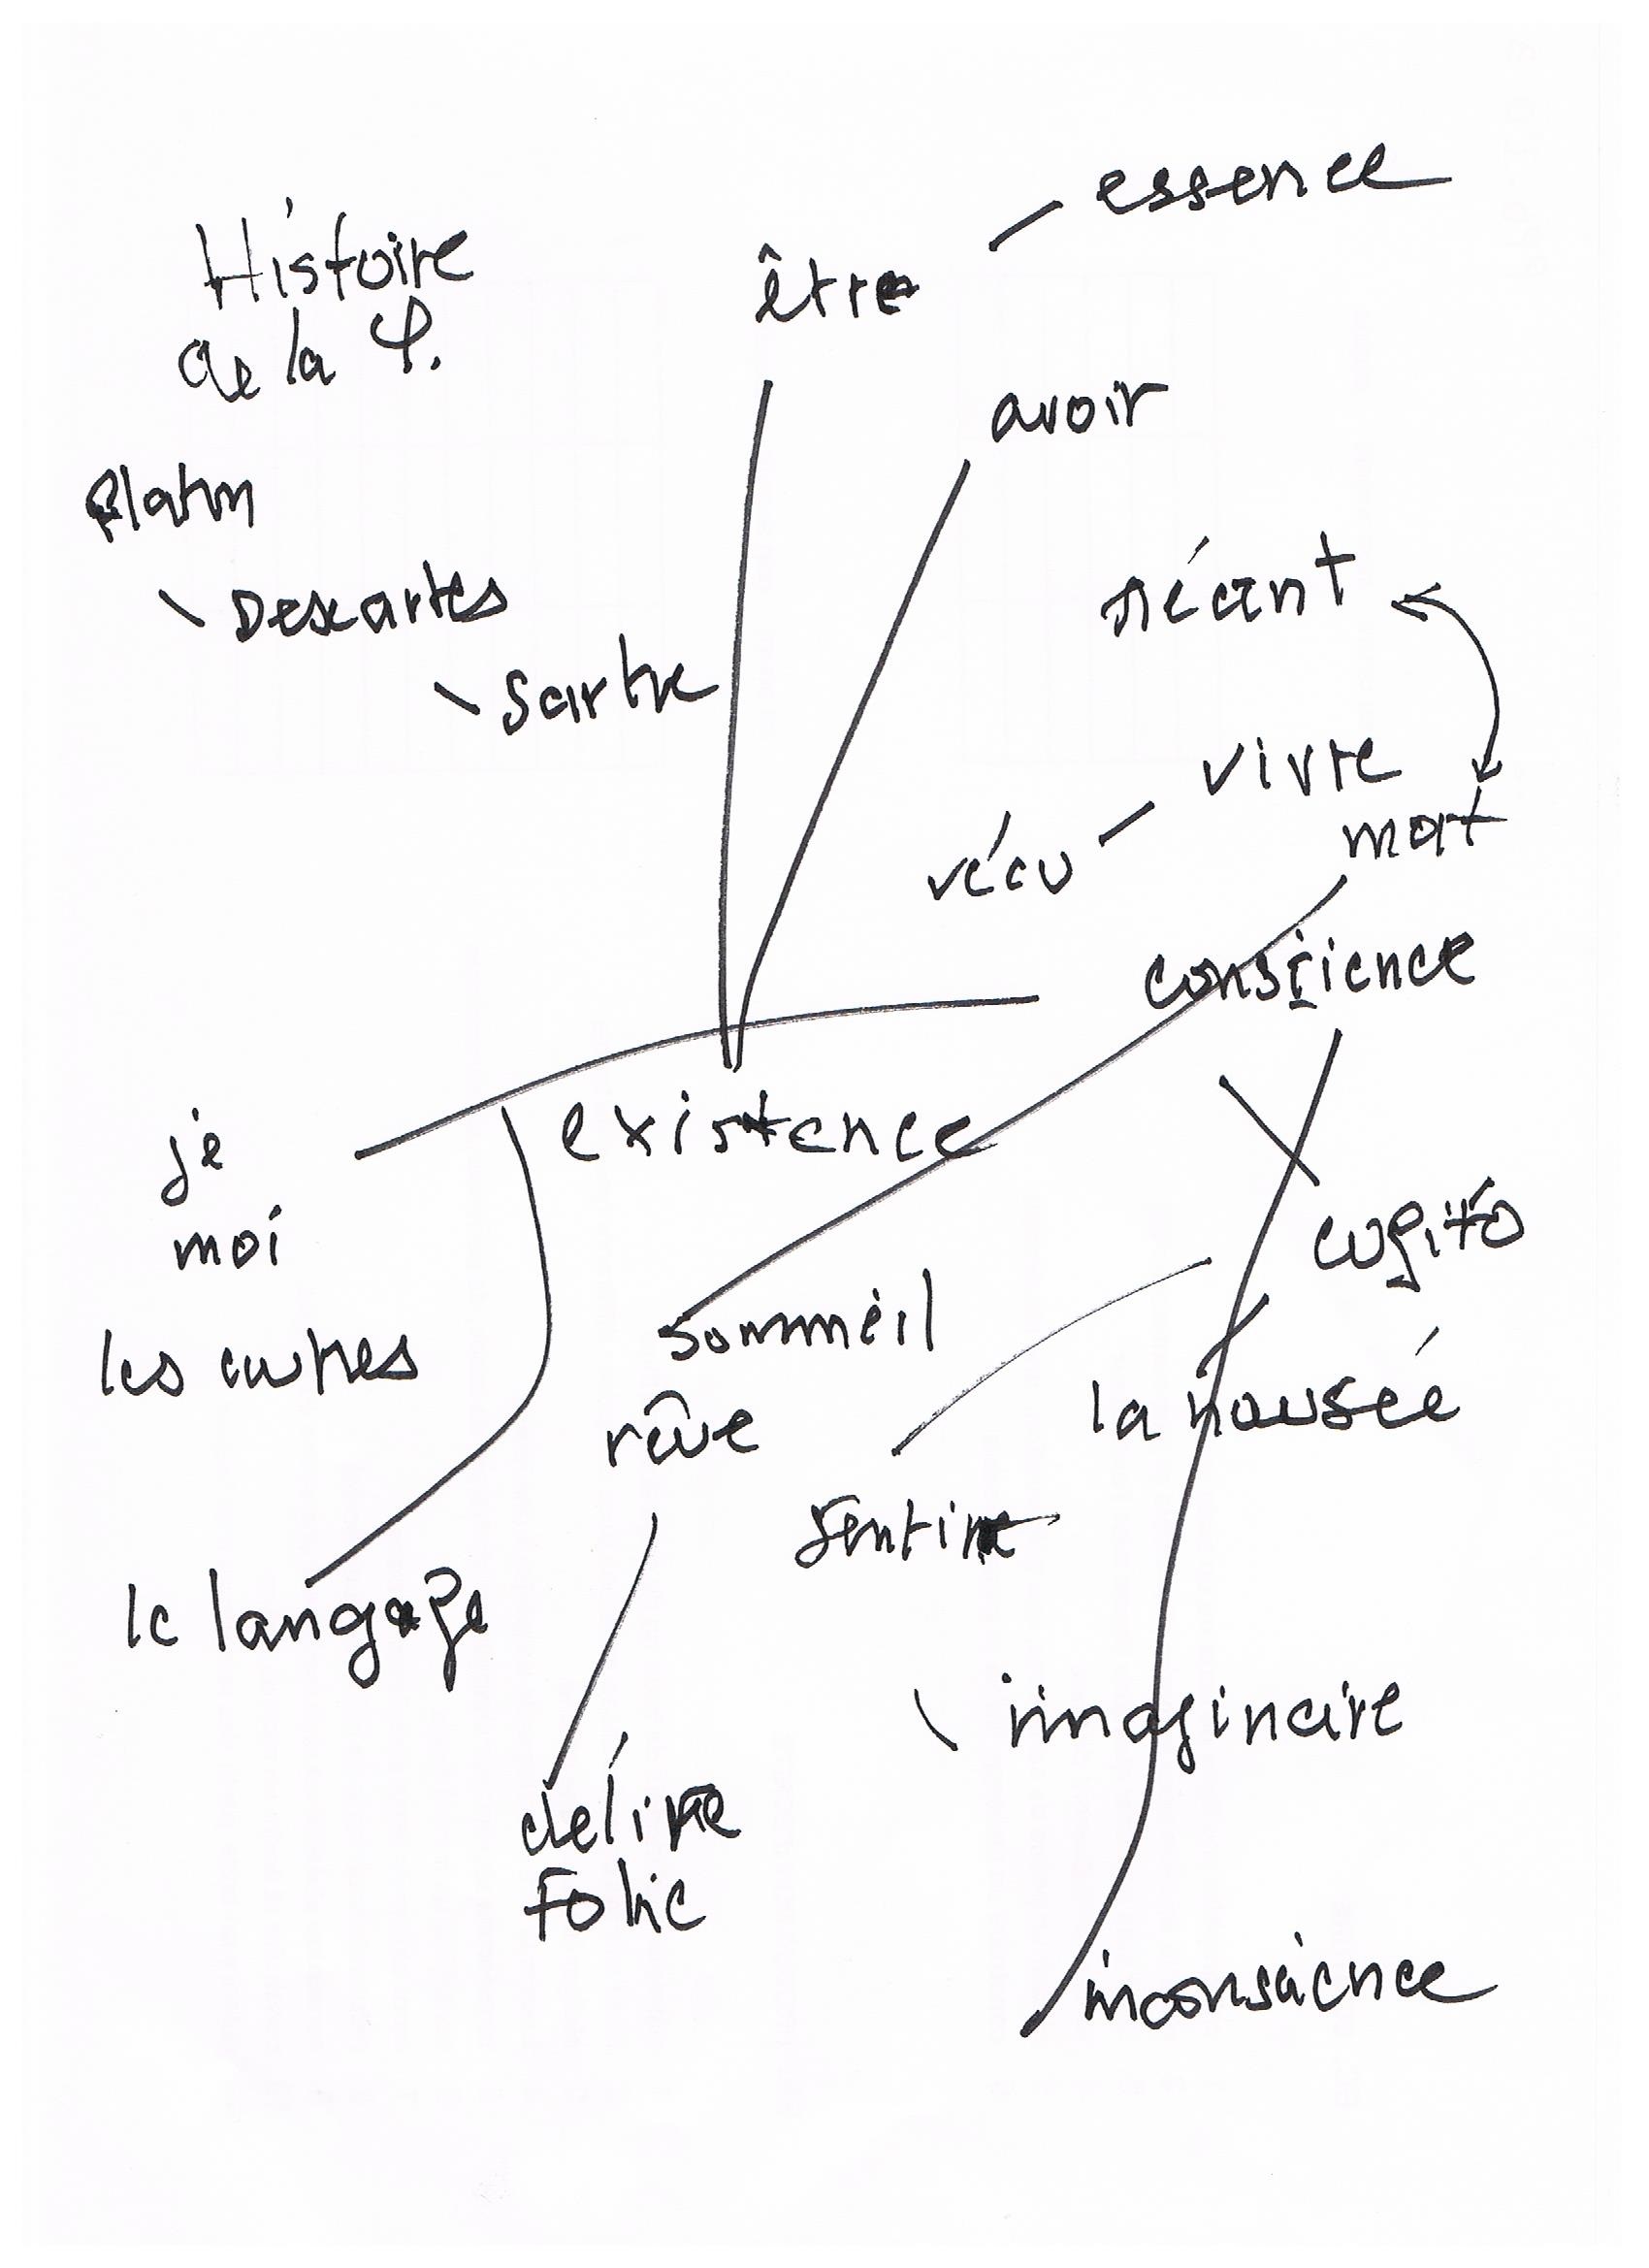 essence
Histoire
de la φ.
être
avoir
Platon
néant
Descartes
Sartre
vivre
mort
vécu
conscience
existence
je
moi
cogito
sommeil
les autres
la nausée
rêve
sentir
le langage
imaginaire
délire
Folie
inconscience